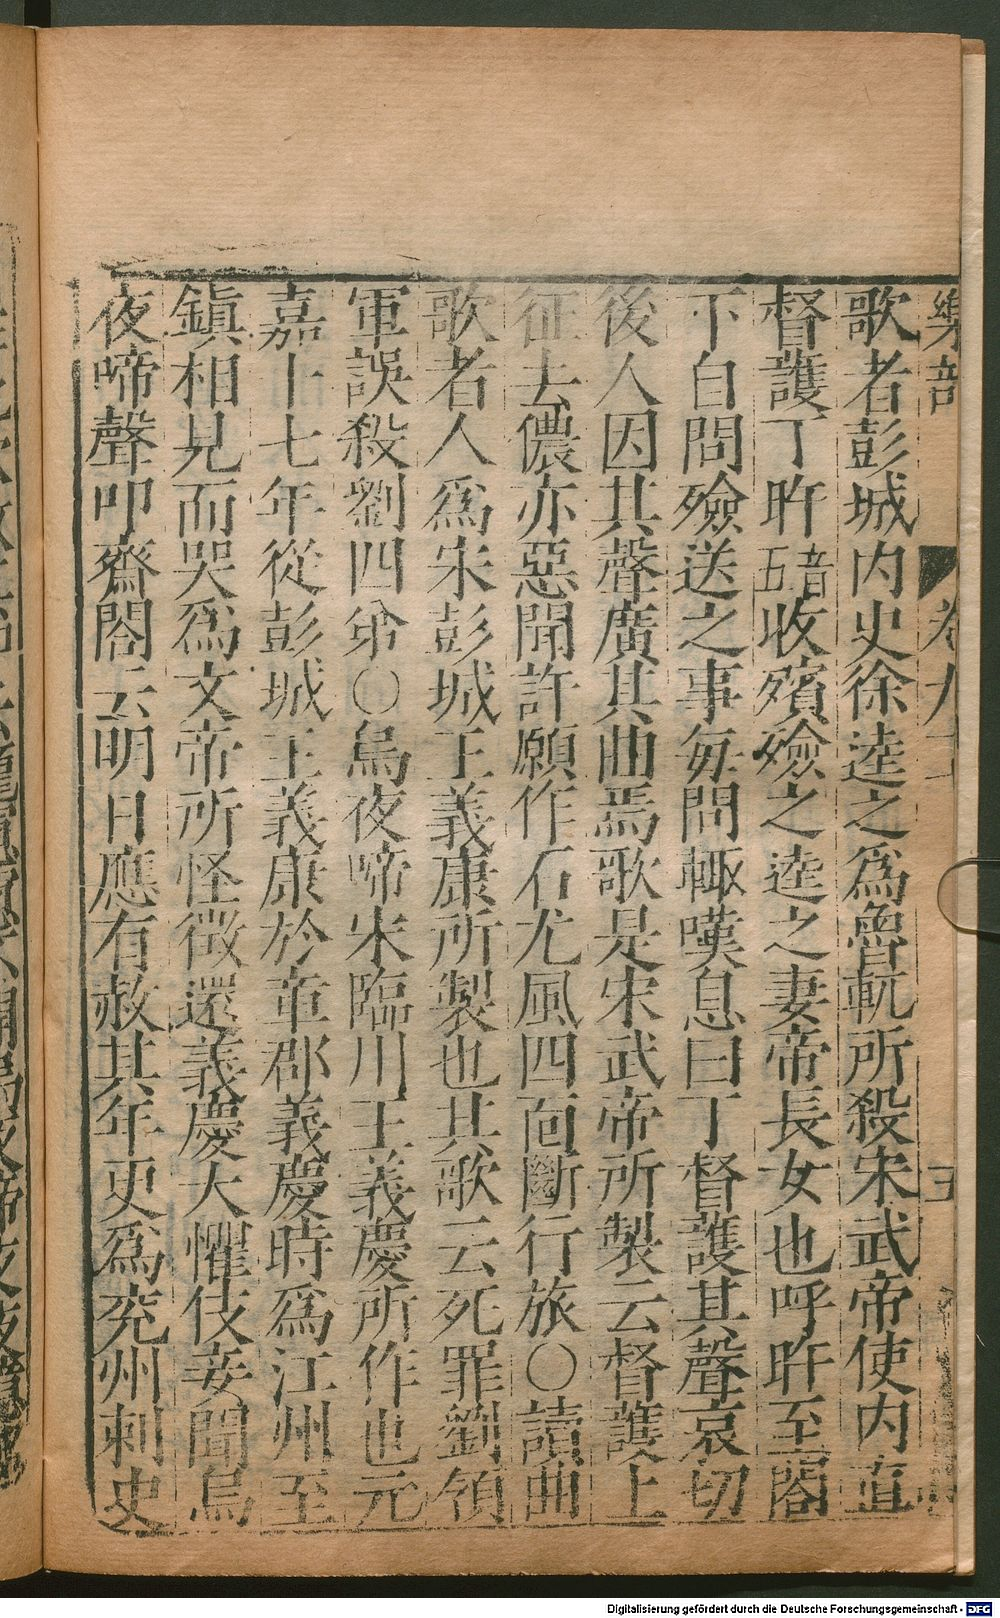 樂部 卷九 五
歌者彭城内史徐逵之爲魯軌所殺宋武帝使内直
督護丁旿音五收殯殮之逵之妻帝長女也呼旿至閤
下自問殮送之事每問輙嘆息曰丁督護其聲哀切
後人因其聲廣其曲焉歌是宋武帝所製云督護上
征去儂亦惡聞許願作石尤風四面斷行旅〇讀曲
歌者人爲宋彭城王義康所製也其歌云死罪劉領
軍誤殺劉四弟〇烏夜啼宋臨川王義慶所作也元
嘉十七年從彭城王義康於章郡義慶時爲江州至
鎮相見而哭爲文帝所怪徵還義慶大懼伎妾聞烏
夜啼聲叩齋閤云明日應有赦其年更爲兖州刺史
Digitalisierung gefördert durch die Deutsche Forschungsgemeinschaft - DFG